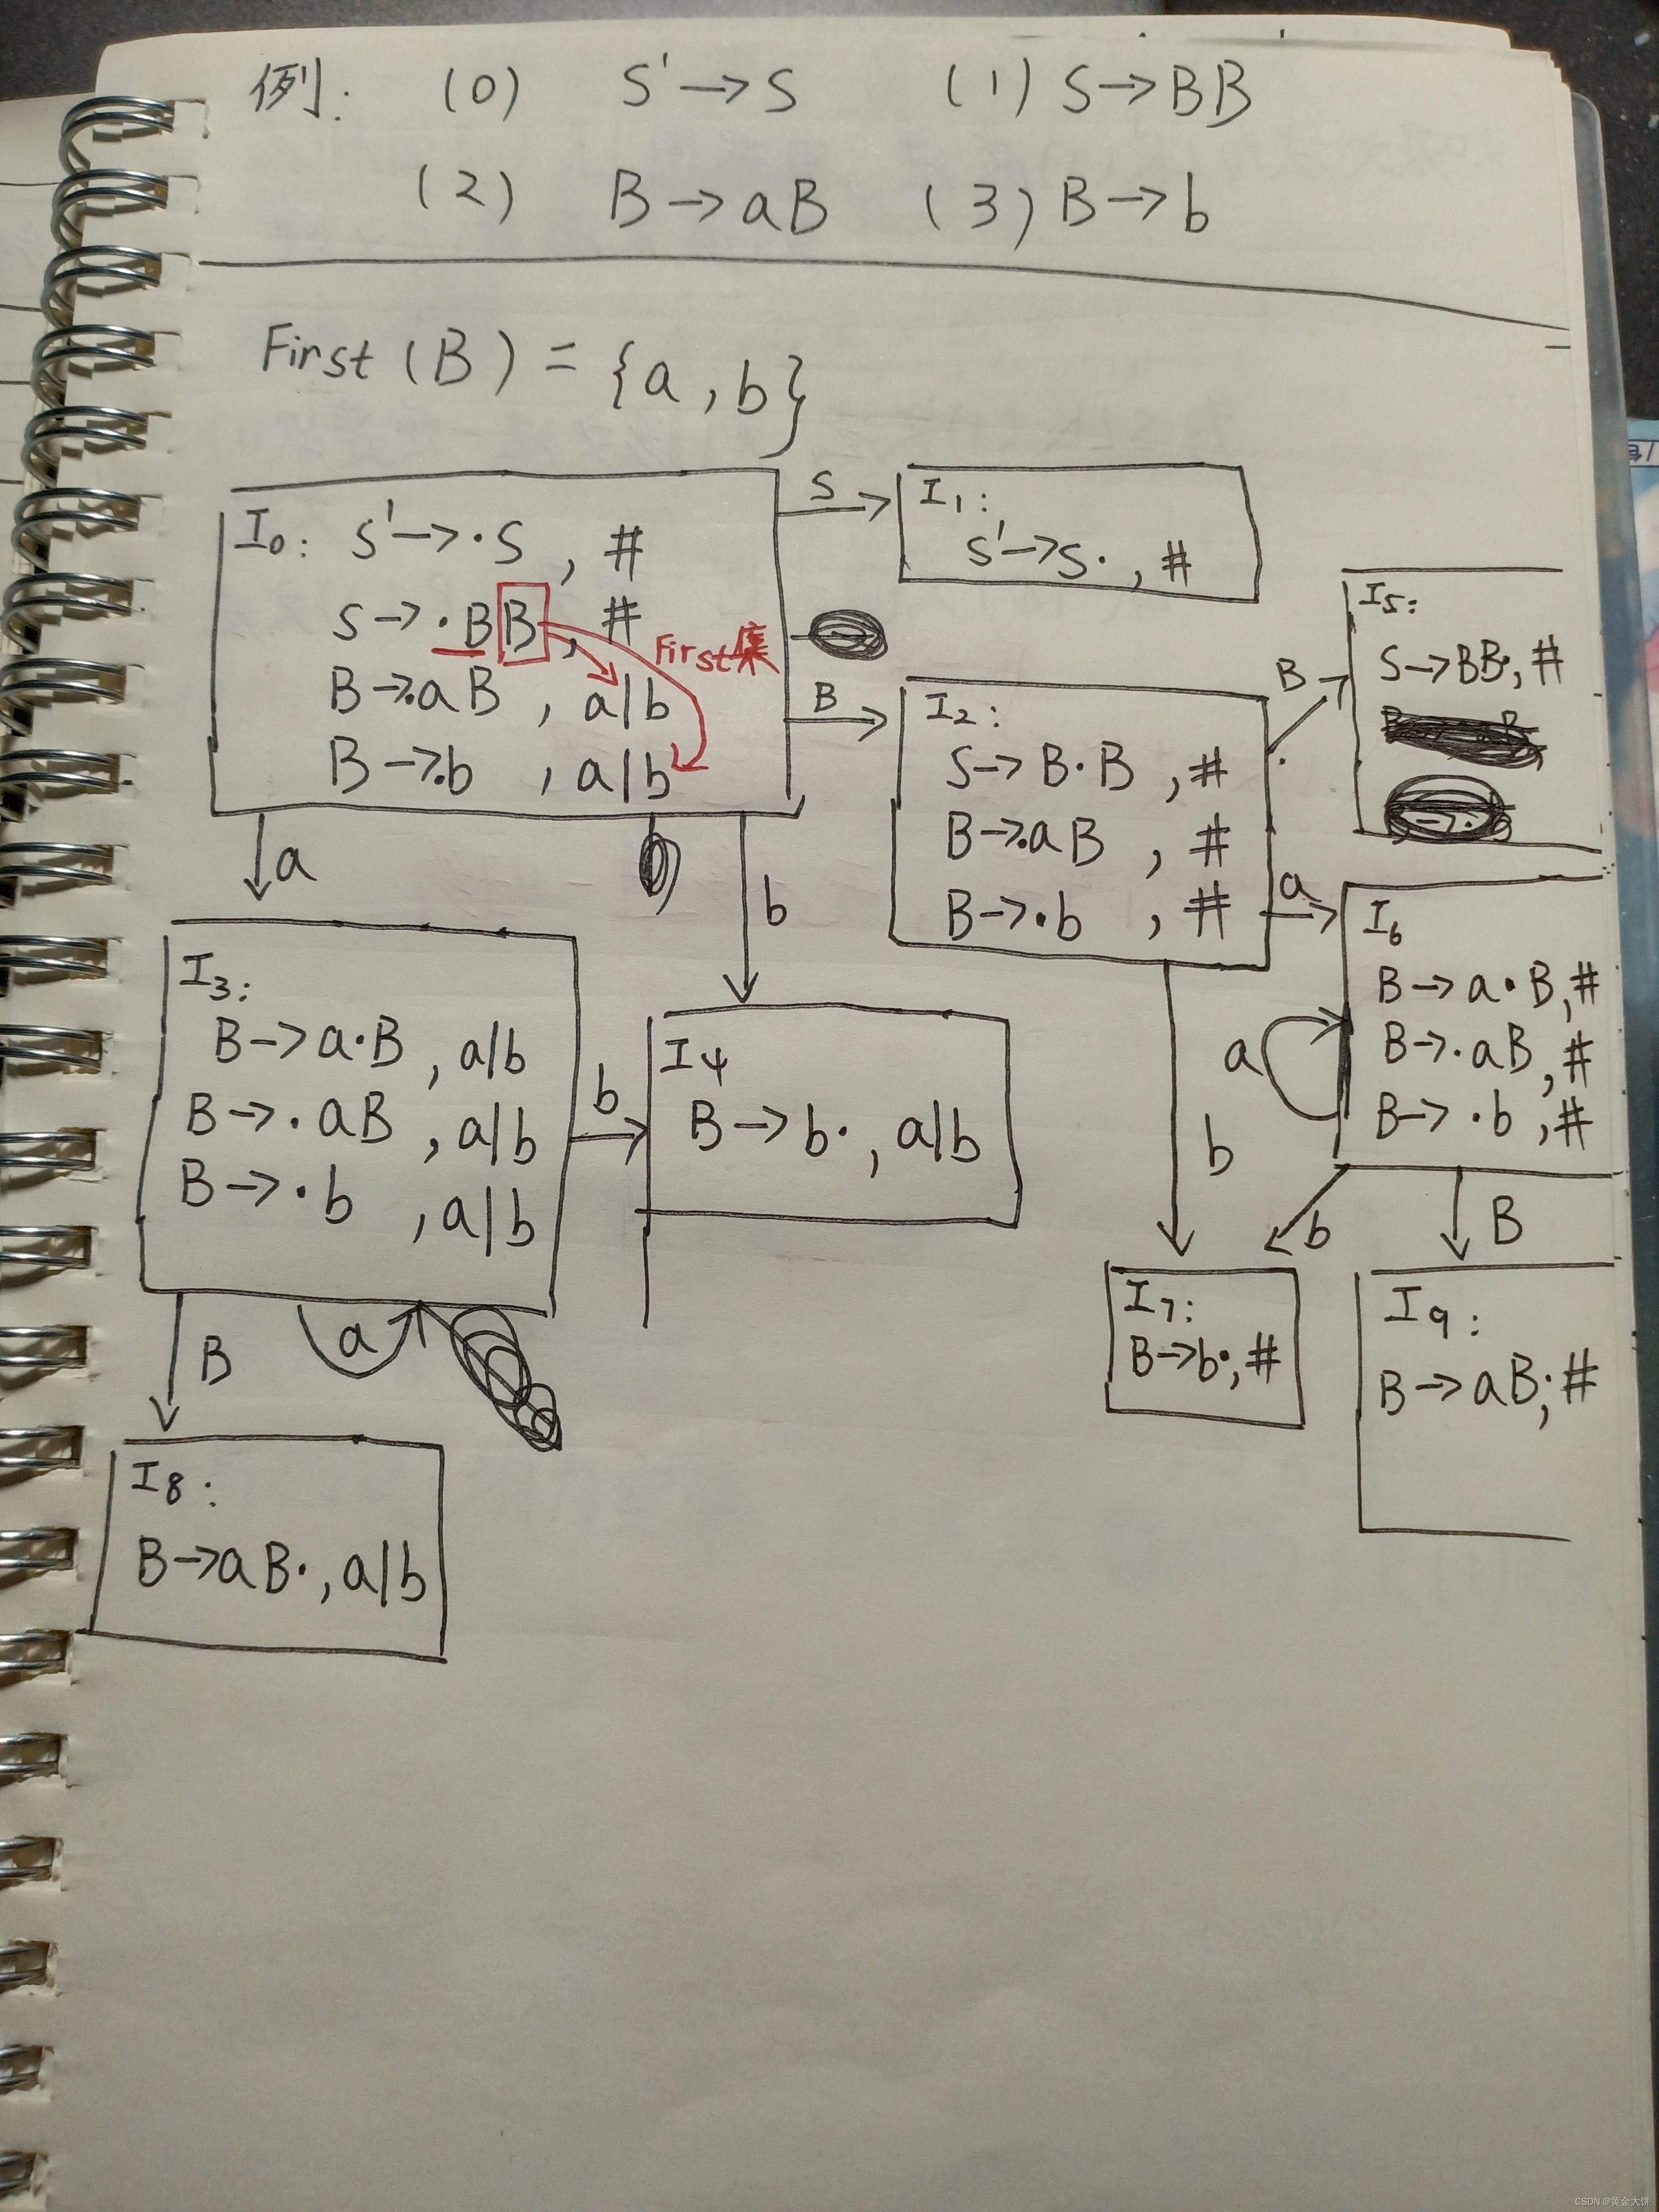 例: (0) S'→S (1) S→BB
(2) B→aB (3) B→b
First(B) = {a,b}
I0: S'→·S, #
S→·BB, #
First集
B→·aB, a|b
B→·b, a|b
S
I1:
S'→S·, #
B
I2:
S→B·B, #
B→·aB, #
B→·b, #
B
I5:
S→BB·, #
a
I6
B→a·B, #
B→·aB, #
B→·b, #
a
a
b
I3:
B→a·B, a|b
B→·aB, a|b
B→·b, a|b
b
I4
B→b·, a|b
b
b
B
I7:
B→b·, #
I9:
B→aB·, #
B
a
I8:
B→aB·, a|b
CSDN @黄金大饼